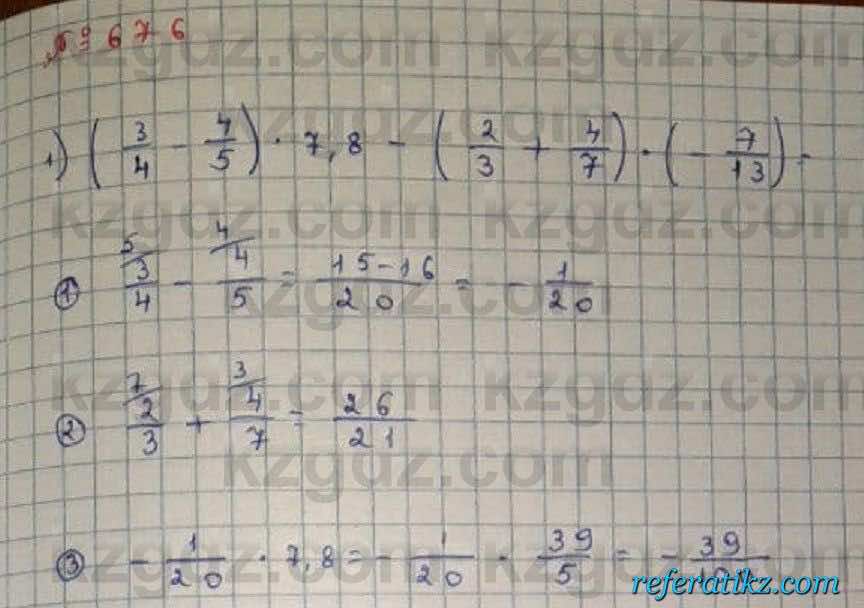 № 676
1) (3/4 - 4/5) · 7,8 - (2/3 + 4/7) · (- 7/13) =
① ⁵⁄3/4 - ⁴⁄4/5 = 15-16/20 = - 1/20
② ⁷⁄2/3 + ³⁄4/7 = 26/21
③ - 1/20 · 7,8 = - 1/20 · 39/5 = - 39/
kzgdz.com
kzgdz.com
kzgdz.com
kzgdz.com
kzgdz.com
kzgdz.com
referatikz.com